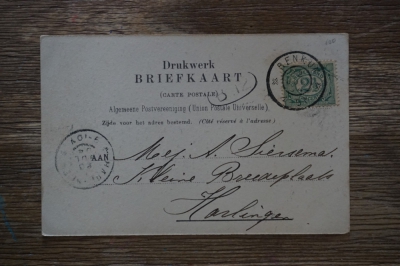 Drukwerk
BRIEFKAART
(CARTE POSTALE)
Algemeene Postvereeniging (Union Postale Universelle).
Zijde voor het adres bestemd. (Côté réservé à l'adresse.)
AAN
Mej. A. Siersema.
Kleine Breedeplaats
Harlingen